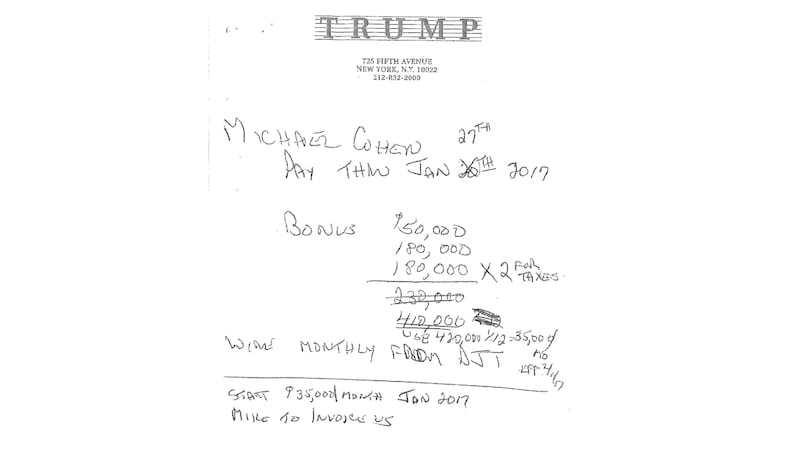 TRUMP
725 FIFTH AVENUE
NEW YORK, N.Y. 10022
212-832-2000
MICHAEL COHEN
27TH
PAY THRU JAN TH 2017
BONUS $50,000
180,000
180,000 X 2 FOR TAXES.
230,000
410,000
USE 420,000 1/12 = 35,000/
MO
WIRE MONTHLY FROM DJT
EFF. 2/1/17
START $35,000/MONTH JAN 2017
MIKE TO INVOICE US